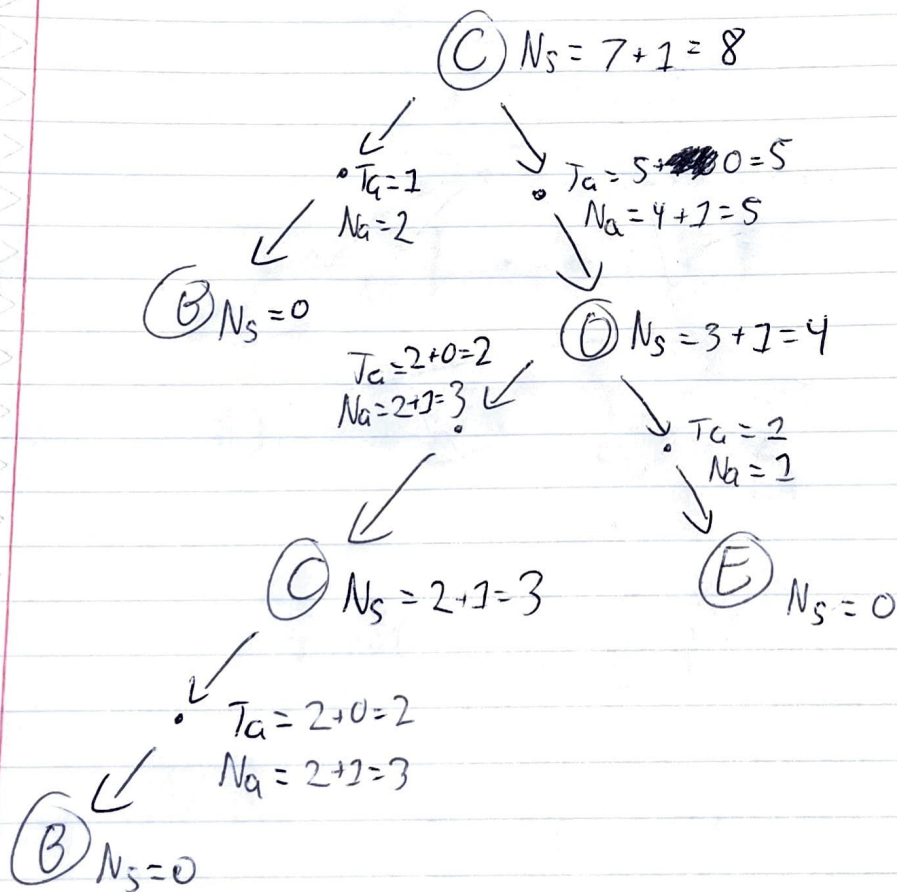 C Ns = 7+1 = 8
Ta=1
Na=2
Ta = 5+ 0=5
Na = 4+1=5
B Ns=0
D Ns = 3+1=4
Ta=2+0=2
Na=2+1=3
Ta = 1
Na = 1
C Ns = 2+1=3
E Ns = 0
Ta = 2+0=2
Na = 2+1=3
B Ns=0